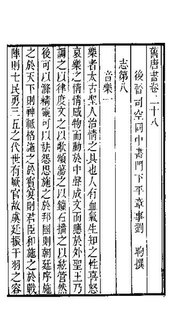 舊唐書卷二十八
後晉司空同中書門下平章事劉 昫撰
志第八
音樂一
樂者太古聖人治情之具也人有血氣生知之性喜怒
哀樂之情情感物而動於中聲成文而應於外聖王乃
調之以律度文之以歌頌蕩之以鐘石播之以絃管然
後可以滌精靈可以祛怨思施之於邦國則朝廷序施
之於天下則神祇格施之於賓宴則君臣和施之於戰
陣則士民勇三五之代世有厥官故虞廷振干羽之容